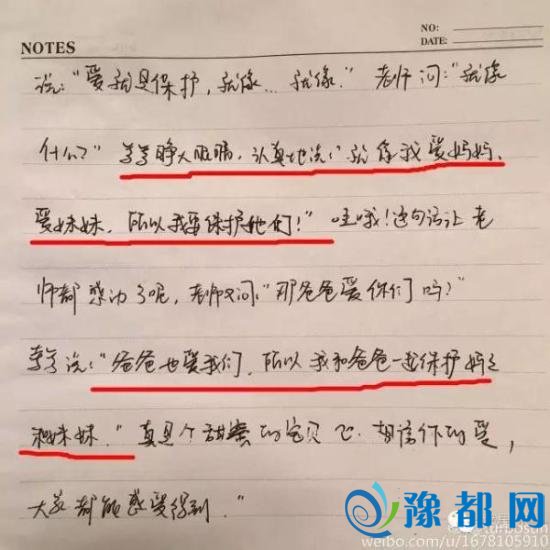 NO:
NOTES
DATE:
说:“爱就是保护,就像…就像.”老师问:“就像
什么?”等等睁大眼睛,认真地说:“就像我爱妈妈、
爱妹妹,所以我要保护她们!”哇哦!这句话让老
师都感动了呢,老师又问:“那爸爸爱你们吗?”
等等说:“爸爸也爱我们,所以我和爸爸一起保护妈妈
和妹妹.”真是个甜蜜的宝贝 相信你的爱,
大家都能感受得到.”
豫都网
weibo.com/u/1678105910